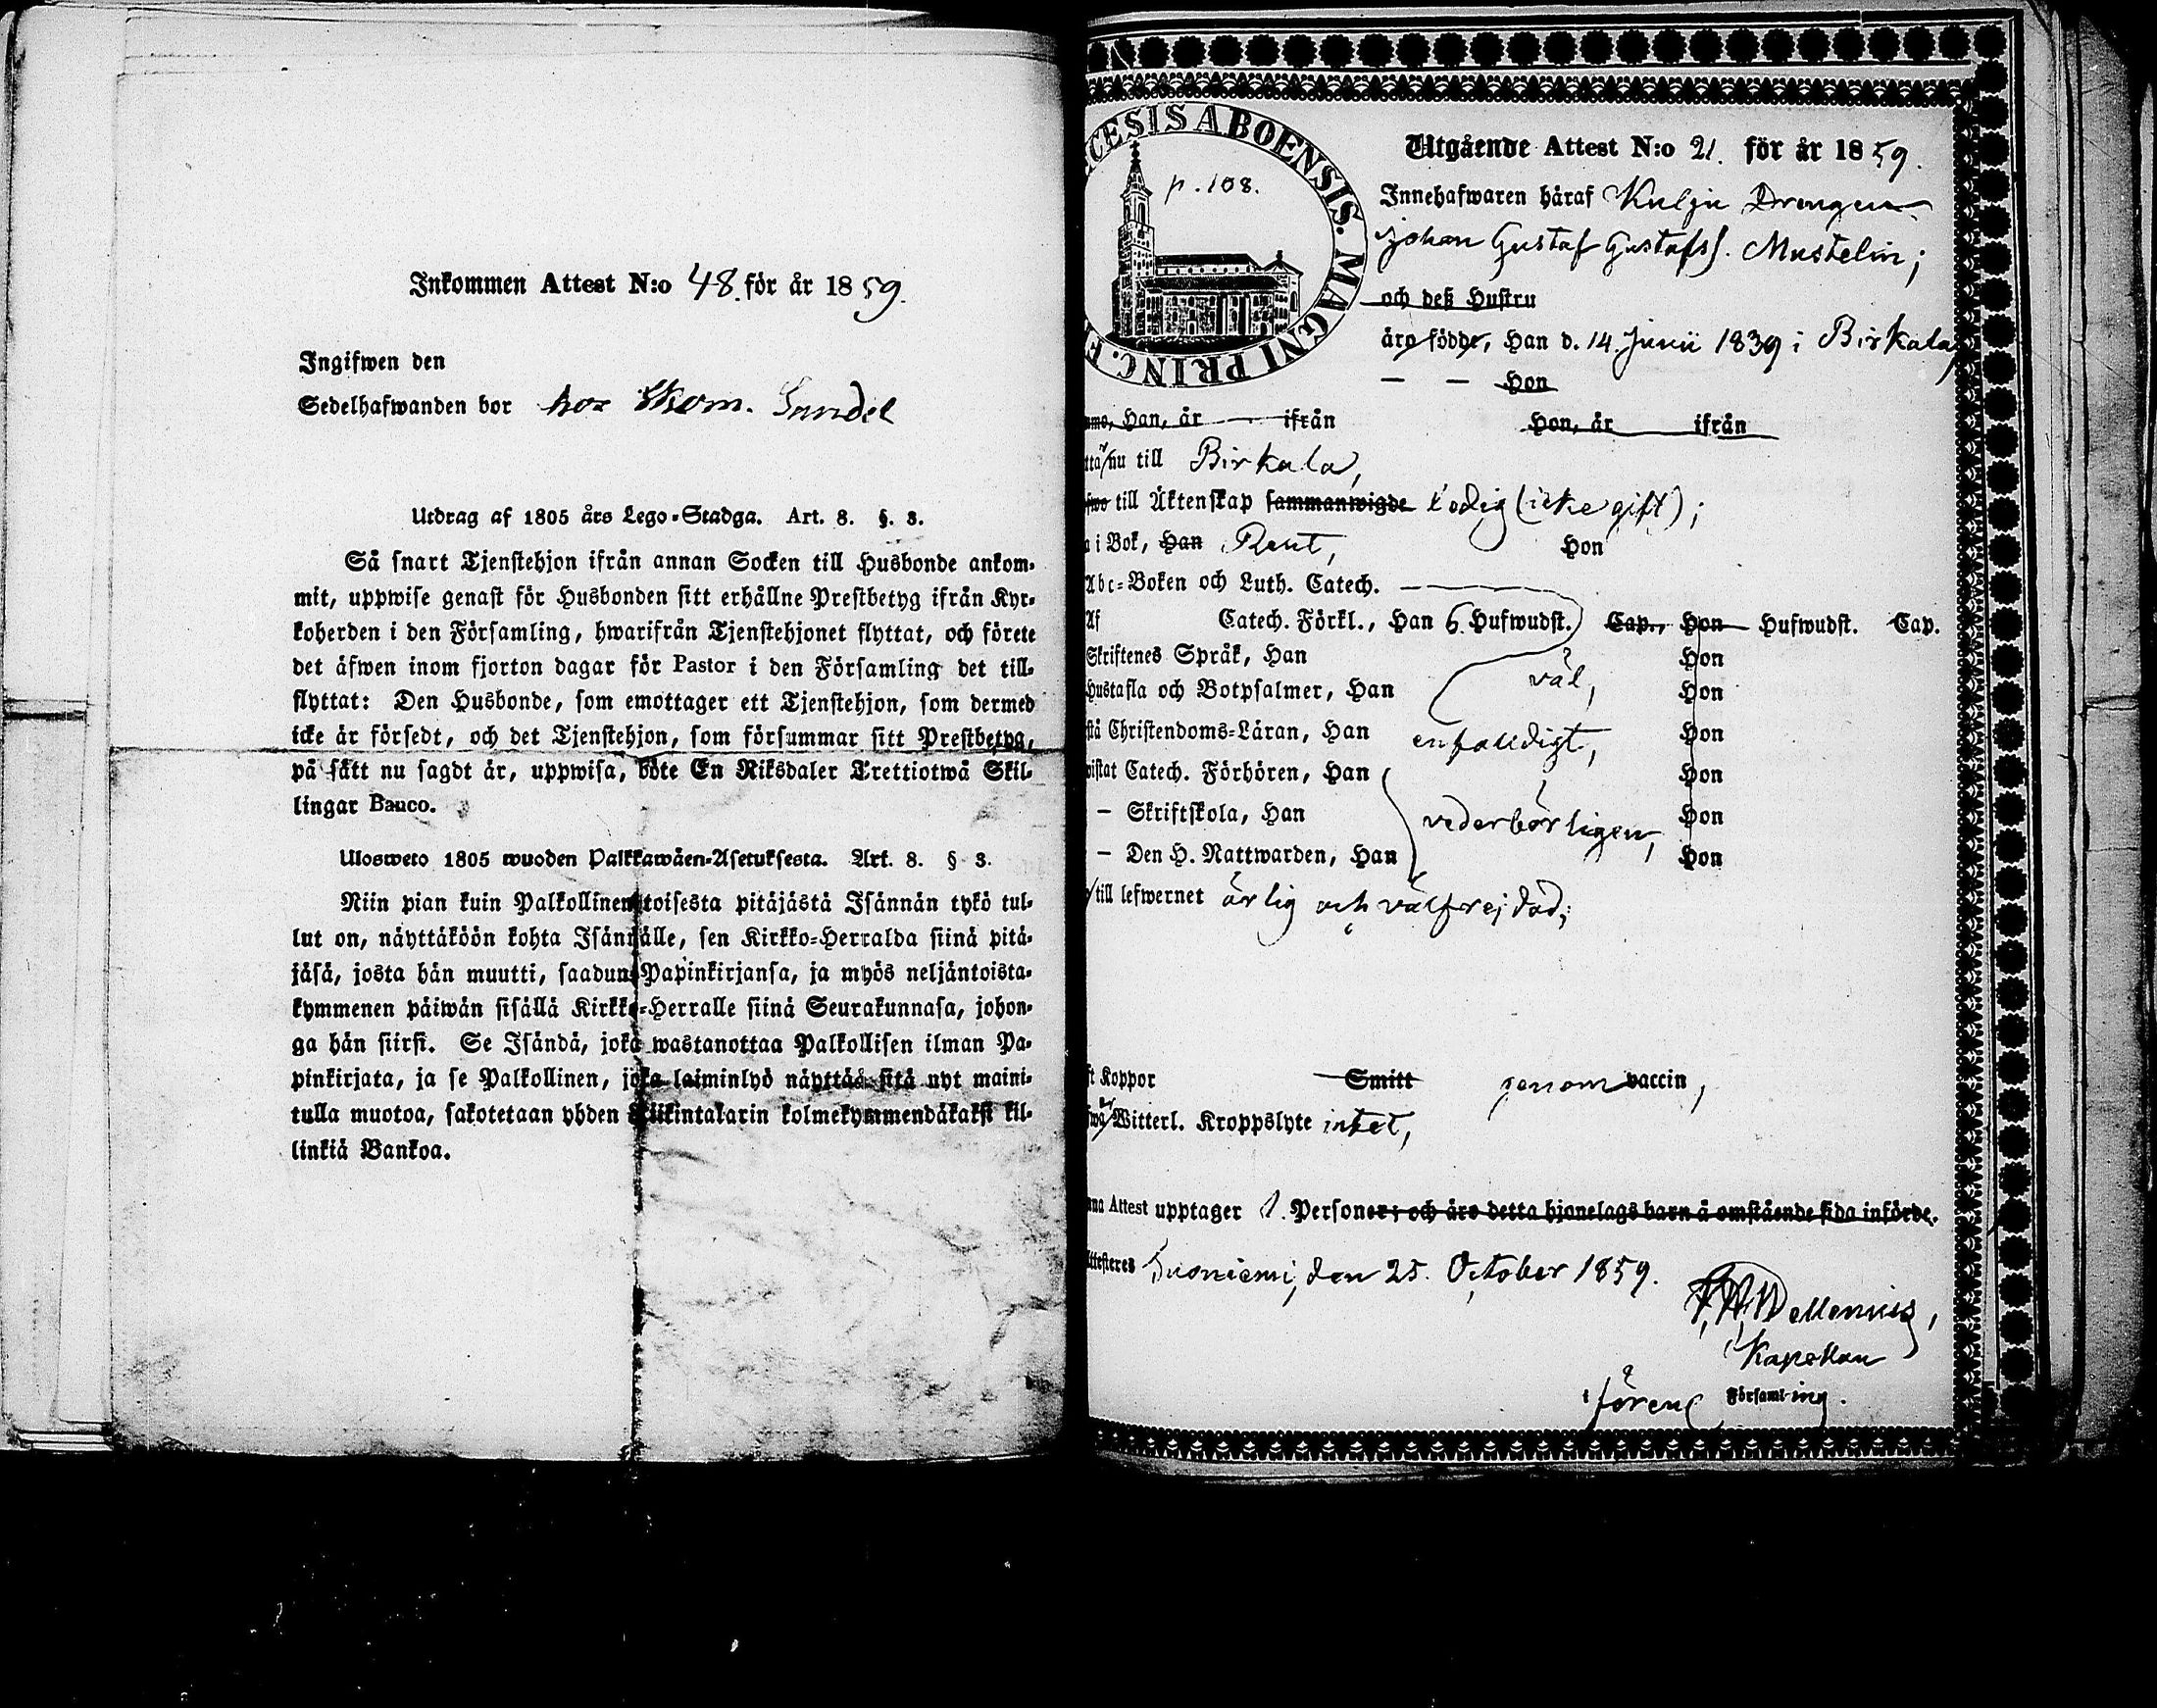 Inkommen Attest N:o 48. för år 1859.
Ingifwen den
Sedelhafwanden bor hos Skom. Sandel
Utdrag af 1805 års Lego-Stadga. Art. 8. §. 3.
Så snart Tjenstehjon ifrån annan Socken till Husbonde ankom-
mit, uppwise genast för Husbonden sitt erhållne Prestbetyg ifrån Kyr-
koherden i den Församling, hwarifrån Tjenstehjonet flyttat, och förete
det äfwen inom fjorton dagar för Pastor i den Församling det till-
flyttat: Den Husbonde, som emottager ett Tjenstehjon, som dermed
icke är försedt, och det Tjenstehjon, som försummar sitt Prestbetyg,
på sätt nu sagdt är, uppwisa, böte En Riksdaler Trettiotwå Skil-
lingar Banco.
Ulosweto 1805 wuoden Palkkawäen-Asetuksesta. Art. 8. § 3.
Niin pian kuin Palkollinen toisesta pitäjästä Isännän tykö tul-
lut on, näyttäköön kohta Isännälle, sen Kirkko-Herralda siinä pitä-
jäsä, josta hän muutti, saadun Papinkirjansa, ja myös neljäntoista-
kymmenen päiwän sisällä Kirkko-Herralle siinä Seurakunnasa, johon-
ga hän siirsi. Se Isändä, joka wastanottaa Palkollisen ilman Pa-
pinkirjata, ja se Palkollinen, joka laiminlyö näyttää sitä nyt maini-
tulla muotoa, sakotetaan yhden Riikintalarin kolmekymmendäkaksi kil-
linkiä Bankoa.
CESIS ABOENSIS. MAGNI PRINC. F
p. 108.
Utgående Attest N:o 21. för år 1859.
Innehafwaren häraf Kulju Drengen
Johan Gustaf Gustafss. Mustelin;
och deß Hustru
äro födde, Han d. 14. Junii 1839 i Birkala,
— — Hon
Han, år ifrån Hon, år ifrån
nu till Birkala,
till Äktenskap sammanwigde Ledig (icke gift);
i Bok, Han Rent, Hon
Abc-Boken och Luth. Catech.
Af Catech. Förkl., Han 6. Hufwudst. Cap., Hon Hufwudst. Cap.
Skriftenes Språk, Han Hon
Hustafla och Botpsalmer, Han väl, Hon
Christendoms-Läran, Han enfaldigt, Hon
Catech. Förhören, Han Hon
— Skriftskola, Han vederbörligen, Hon
— Den H. Nattwarden, Han Hon
till lefwernet ärlig och välfrejdad;
Koppor Smitt genom vaccin,
Witterl. Kroppslyte intet,
Attest upptager 1. Personer; och äro detta hjonelags barn å omstående sida införde.
Attesteres Suoniemi, den 25. October 1859.
Wellenius,
Kapellan
i föreno Församl-ing.